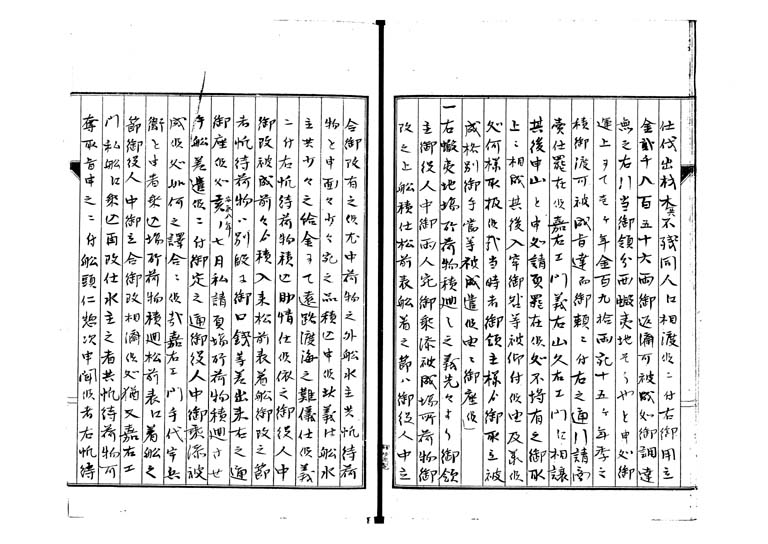 仕伐出材木共不残同人江相渡候ニ付右御用立
金貳千八百五十六両御返済可被成候処御調達
無之右川当御領分西蝦夷地そうやと申処御
運上ヲ以壱ヶ年金百九拾両宛十五ヶ年季之
積御渡可被成旨達而御頼ニ付右之通川請負
売仕罷在候嘉右エ門義右山久右エ門江相譲
其後申山と申処請負罷在候処不埒有之御取
上ニ相成其後入牢御咎等被仰付候由及承候
処何様取扱候哉当時者御領主様江御取立被
成格別御手当等被成遣候由ニ御座候
一右蝦夷地場所荷物積廻し之義先々より御領
主御役人中御両人宛御乗添被成場所荷物御
改之上船積仕松前表船着之節ハ御役人中立
合御改有之候尤中荷物之外船水主共帆待荷
物と申面々少々宛之品積込申候此義船水
主共少々之給金ヲ以遠路渡海之難儀仕候義
ニ付右帆待荷物積込助情仕候依之御役人中
御改被成前々より積入来松前表着船御改之節
右帆待荷物ハ別段ニ御口銭等差出来右之通
御座候処亥八年七月私請負場所荷物積廻させ
手船差遣候ニ付御定之通御役人中御乗添被
成候処如何之譯合ニ候哉嘉右エ門手代宇兵
衛と申者乗込場所荷物積廻松前表江着船之
節御役人中御立合御改相濟候処猶又嘉右エ
門私船江乗込再改仕水主之者共帆待荷物可
奪取旨申之ニ付船頭仁惣次申聞候者右帆待